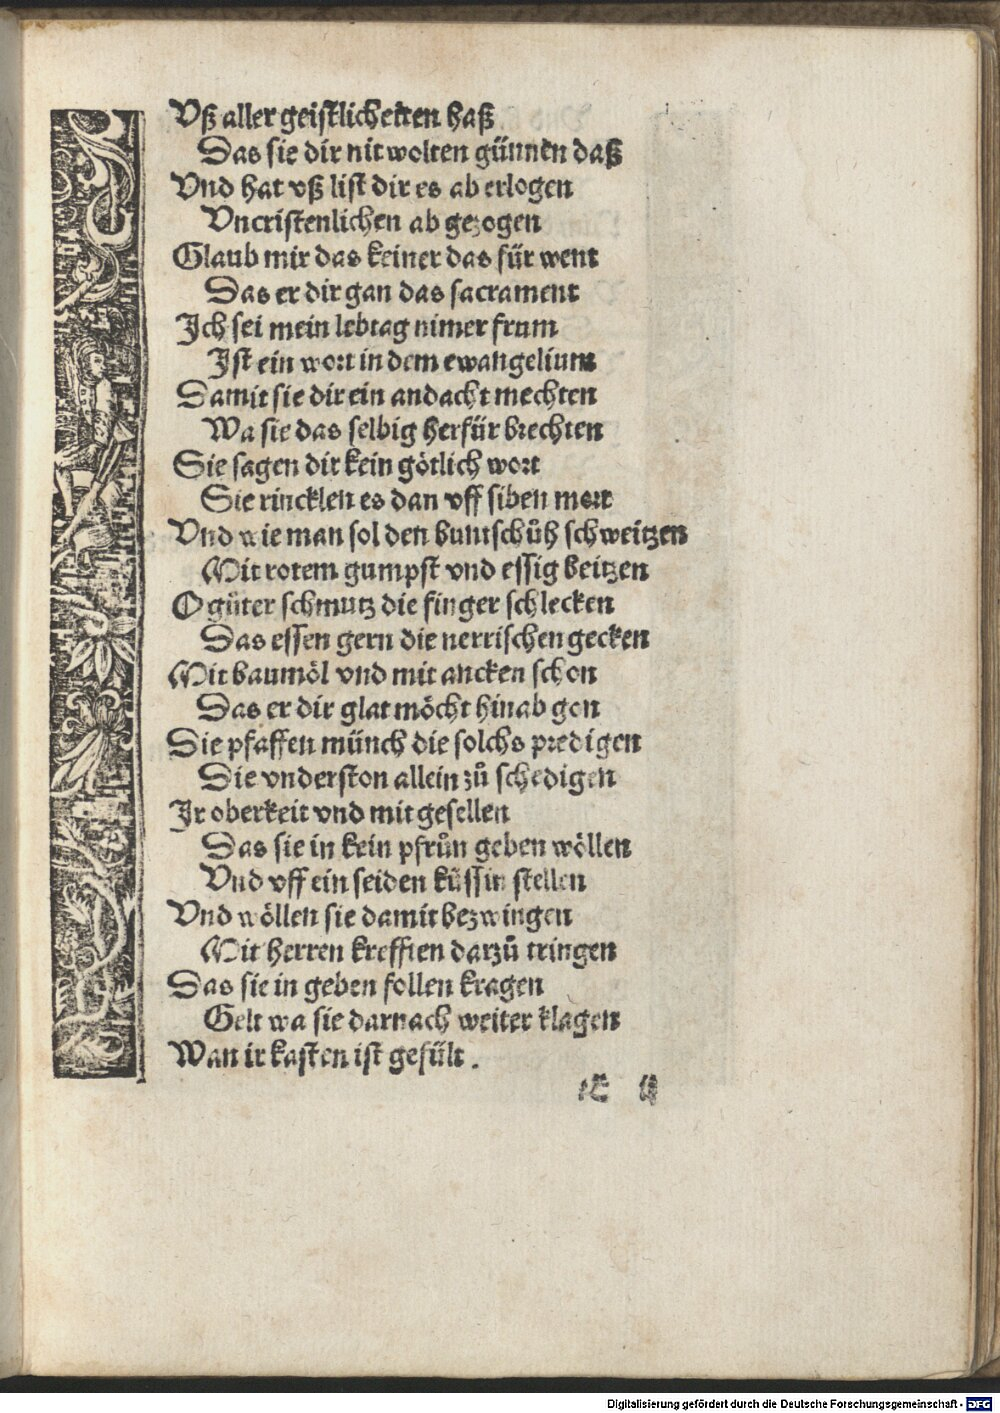 Vß aller geistlichetten haß
Das sie dir nit wolten günnen daß
Vnd hat vß list dir es ab erlogen
Vncristenlichen ab gezogen
Glaub mir das keiner das für went
Das er dir gan das sacrament
Ich sei mein lebtag nimer frum
Ist ein wort in dem ewangelium
Damit sie dir ein andacht mechten
Wa sie das selbig herfür brechten
Sie sagen dir kein götlich wort
Sie rincklen es dan vff siben mort
Vnd wie man sol den buntschůh schweitzen
Mit rotem gumpst vnd essig beitzen
O gůter schmutz die finger schlecken
Das essen gern die nerrischen gecken
Mit baumöl vnd mit ancken schon
Das er dir glat möcht hinab gon
Die pfaffen münch die solchs predigen
Die vnderston allein zů schedigen
Ir oberkeit vnd mit gesellen
Das sie in kein pfrůn geben wöllen
Vnd vff ein seiden küssin stellen
Vnd wöllen sie damit bezwingen
Mit herren krefften darzů tringen
Das sie in geben follen kragen
Gelt wa sie darnach weiter klagen
Wan ir kasten ist gefült .
Digitalisierung gefördert durch die Deutsche Forschungsgemeinschaft - DFG